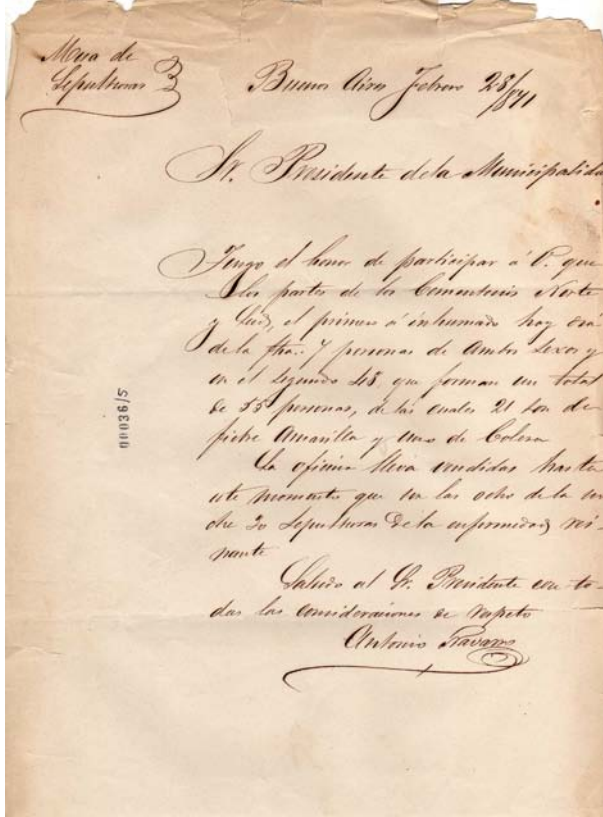 Mesa de
Sepulturas
Buenos Aires Febrero 28/871
Sr. Presidente de la Municipalida
Tengo el honor de participar á V. que
los partes de los Cementerios Norte
y Sud, el primero á inhumado hoy dia
de la fha. 7 personas de Ambos Sexos y
en el segundo 48, que forman un total
de 55 personas, de las cuales 21 son de
fiebre Amarilla y uno de Colera
La oficina lleva vendidas hasta
este momento que son las ocho de la no
che 20 Sepulturas de la enfermedad rei-
nante
Saludo al Sr. Presidente con to-
das las consideraciones de respeto
Antonio
00036/5